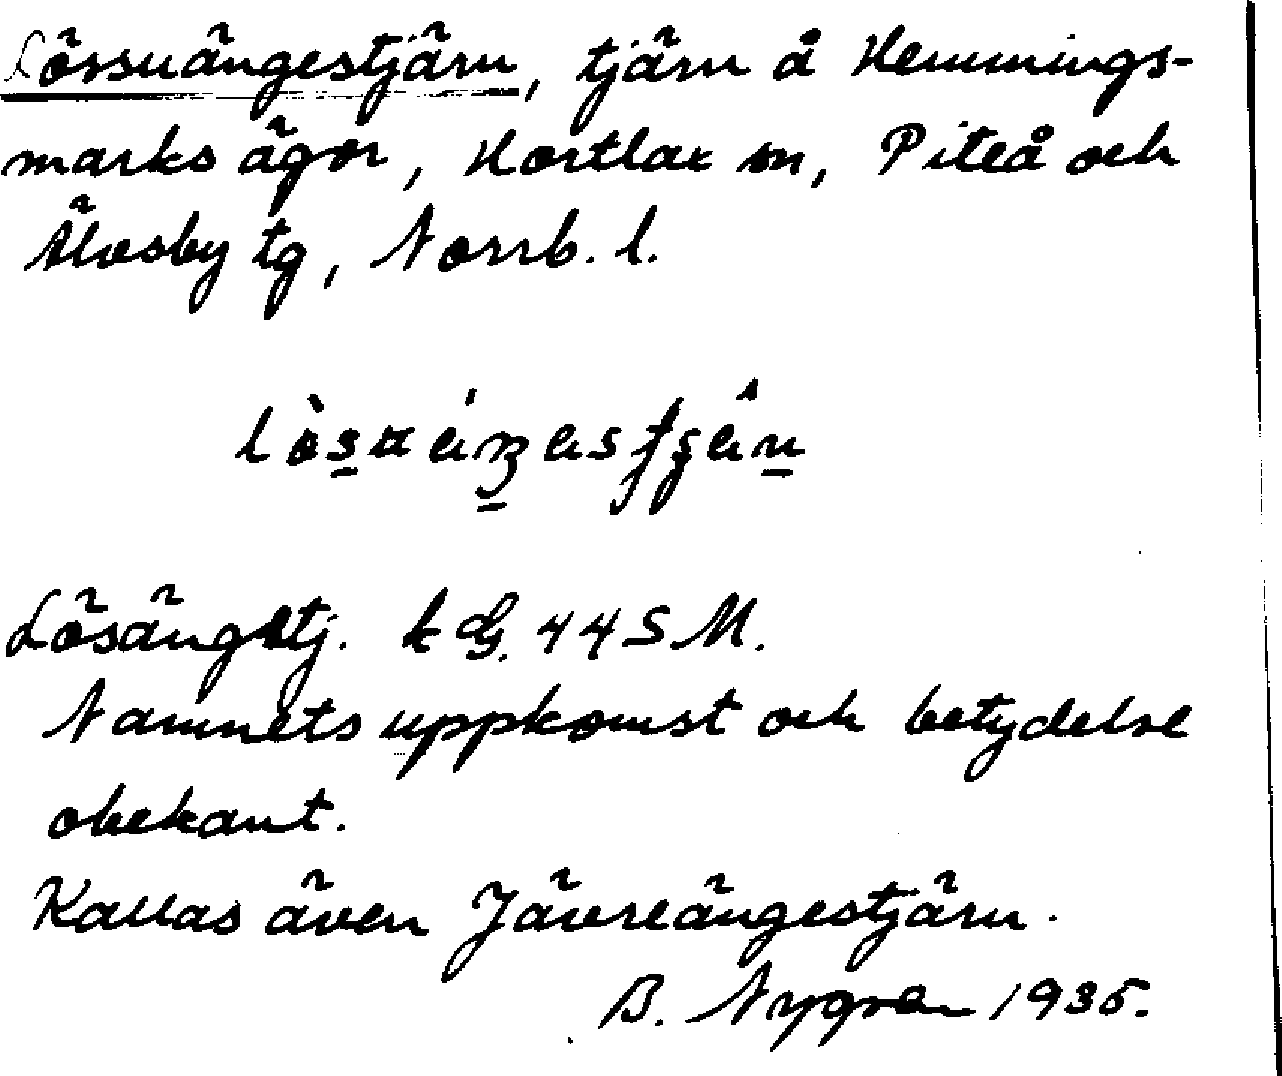 Lössuängestjärn, tjärn å Hemmings-
marks ägor, Hortlax sn, Piteå och
Älvsby tg, Norrb. l.
Lösängstj. k G. 44 S M.
Namnets uppkomst och betydelse
obekant.
Kallas även Jävreängestjärn.
B. Nygren 1935.